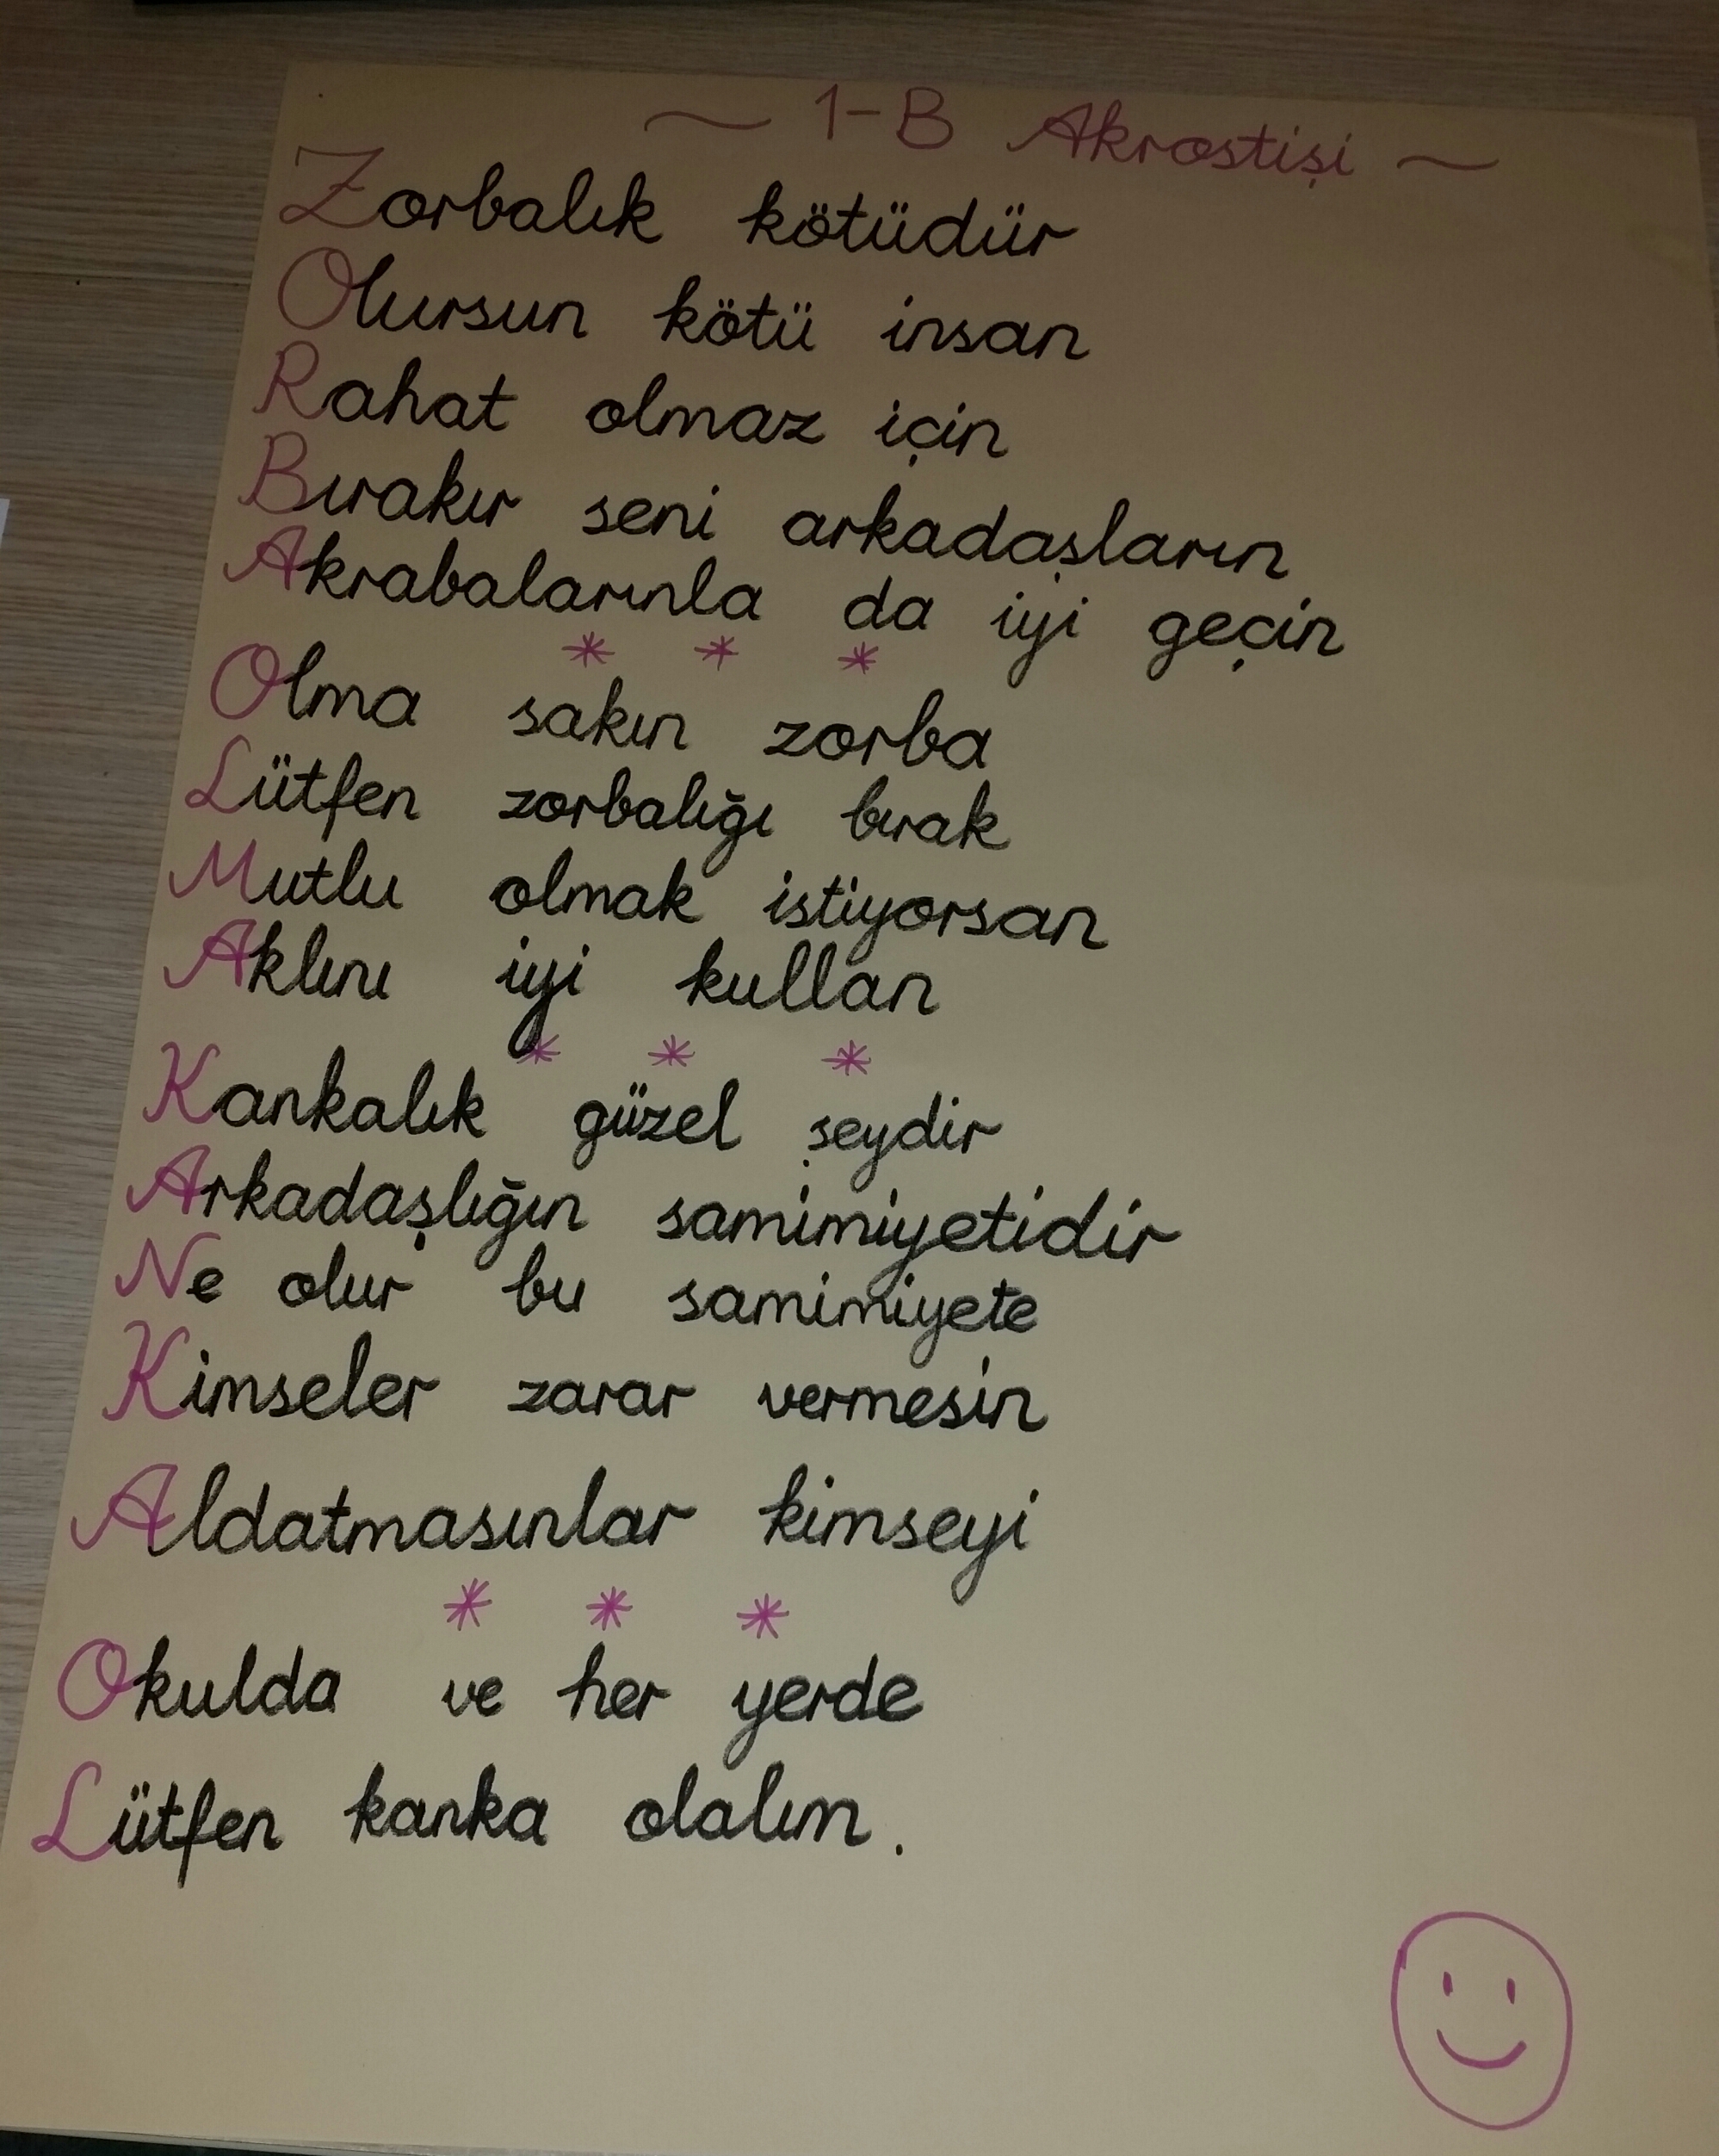 ~ 1-B Akrostişi ~
Zorbalık kötüdür
Olursun kötü insan
Rahat olmaz için
Bırakır seni arkadaşların
Akrabalarınla da iyi geçin
* * *
Olma sakın zorba
Lütfen zorbalığı bırak
Mutlu olmak istiyorsan
Aklını iyi kullan
* * *
Kankalık güzel şeydir
Arkadaşlığın samimiyetidir
Ne olur bu samimiyete
Kimseler zarar vermesin
Aldatmasınlar kimseyi
* * *
Okulda ve her yerde
Lütfen kanka olalım.